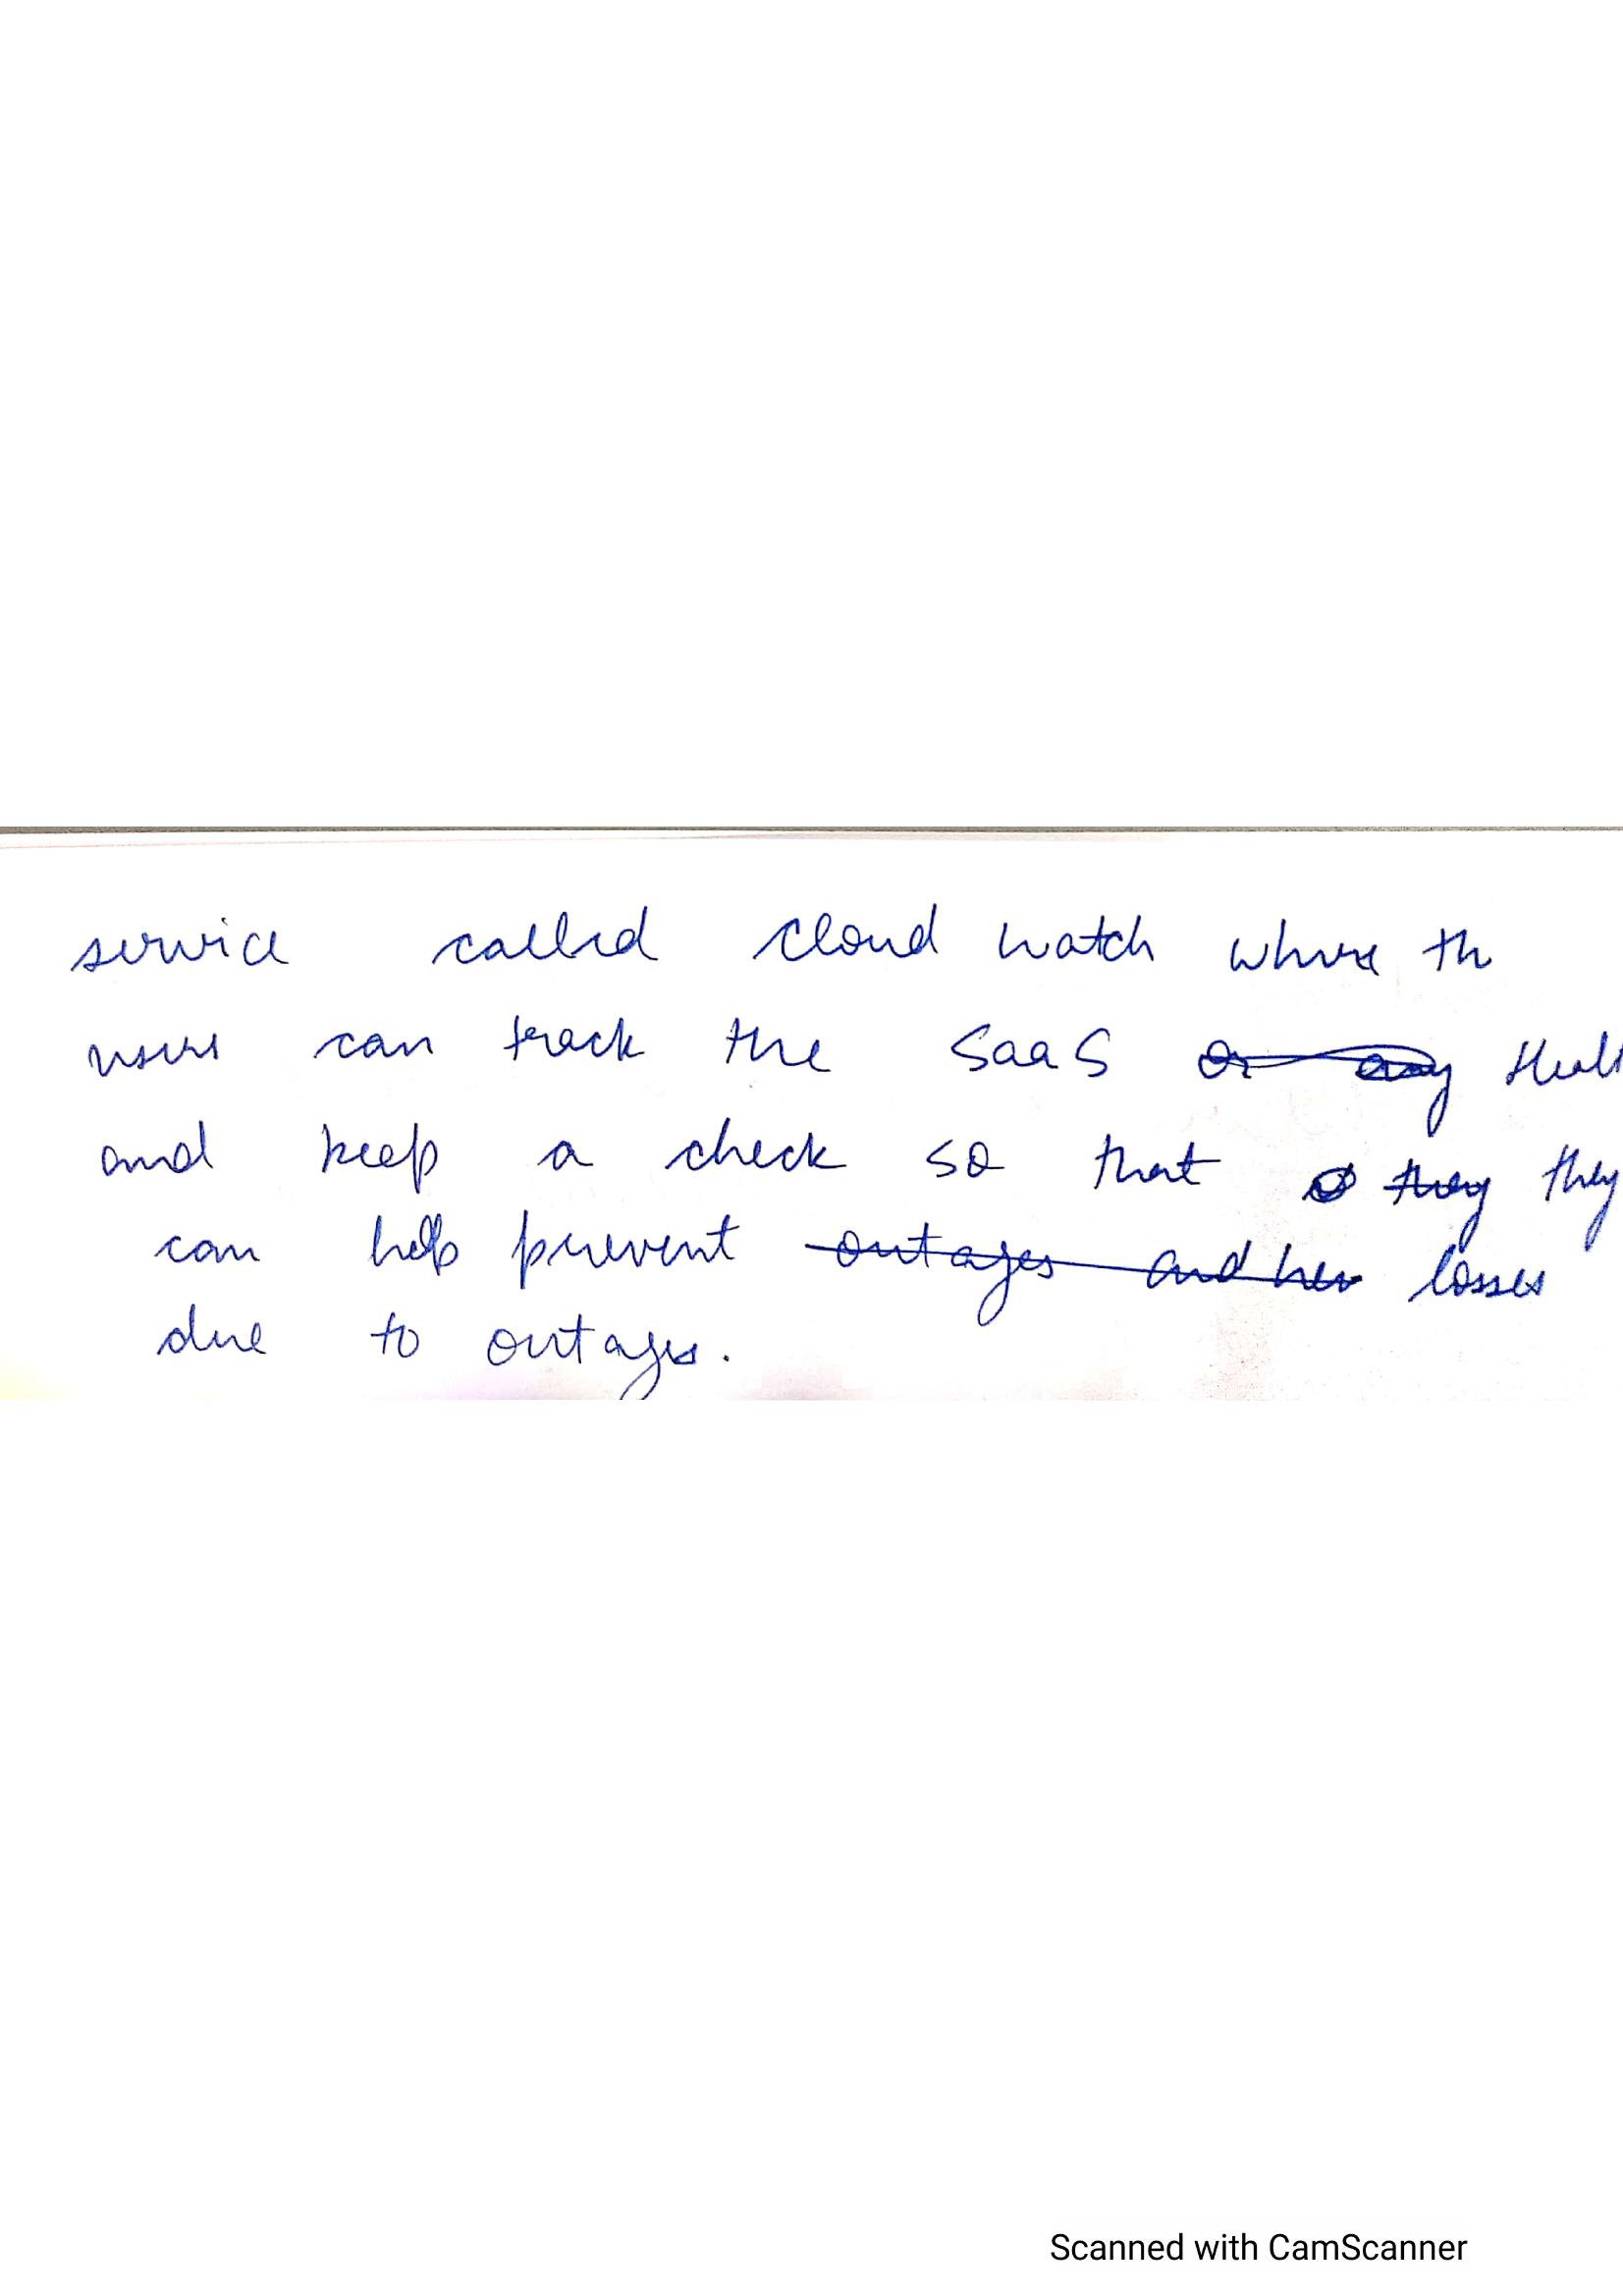 service called cloud watch where th
users can track the SaaS or any
and keep a check so that they they
can help prevent outages and hev losses
due to outages.
Scanned with CamScanner